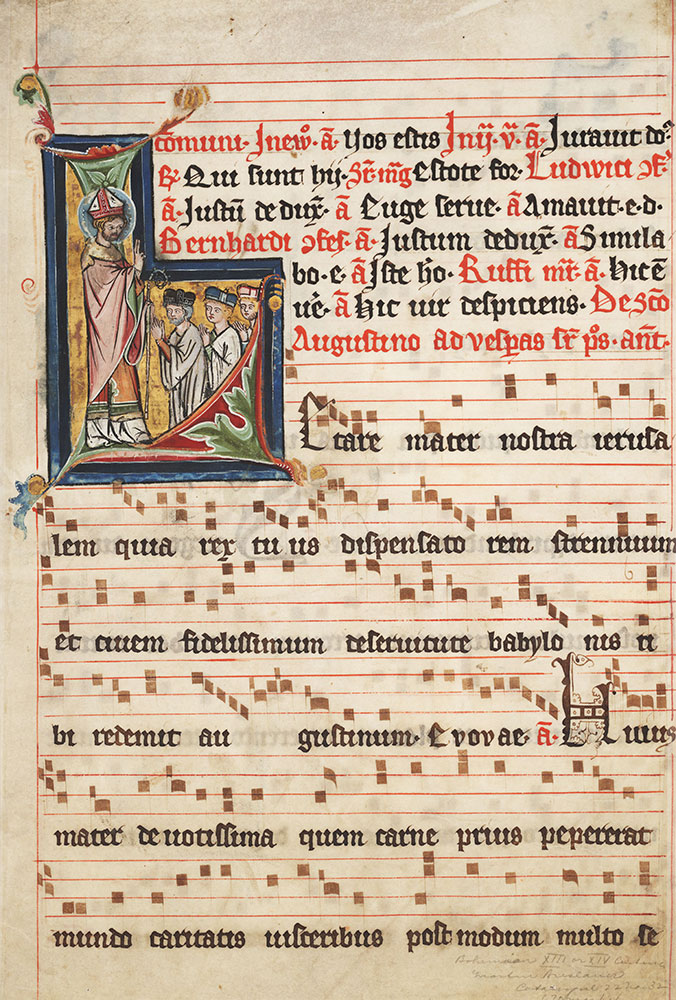 comuni. Inewo. a. Vos estis Inij. v. a. Iuravit do.
R. Qui sunt hij. Estote for. Ludwici
a. Justu dedux. a Euge serve. a Amavit. e. d.
Bernhardi a. Justum dedux. a Simila
bo. e. a Iste ho. Ruffi mr. a. Hic e
a Hic vir despiciens. De sco
Augustino ad vesperas sr. ps. ant.
Letare mater nostra ierusa
lem quia rex tu us dispensato rem strennuum
et civem fidelissimum deservitute babylo nis ti
bi redemit au gustinum. Evovae. a. Huius
mater devotissima quem carne prius pepererat
mundo caritatis visceribus post modum multo se
Bohemian XIII or XIV Century